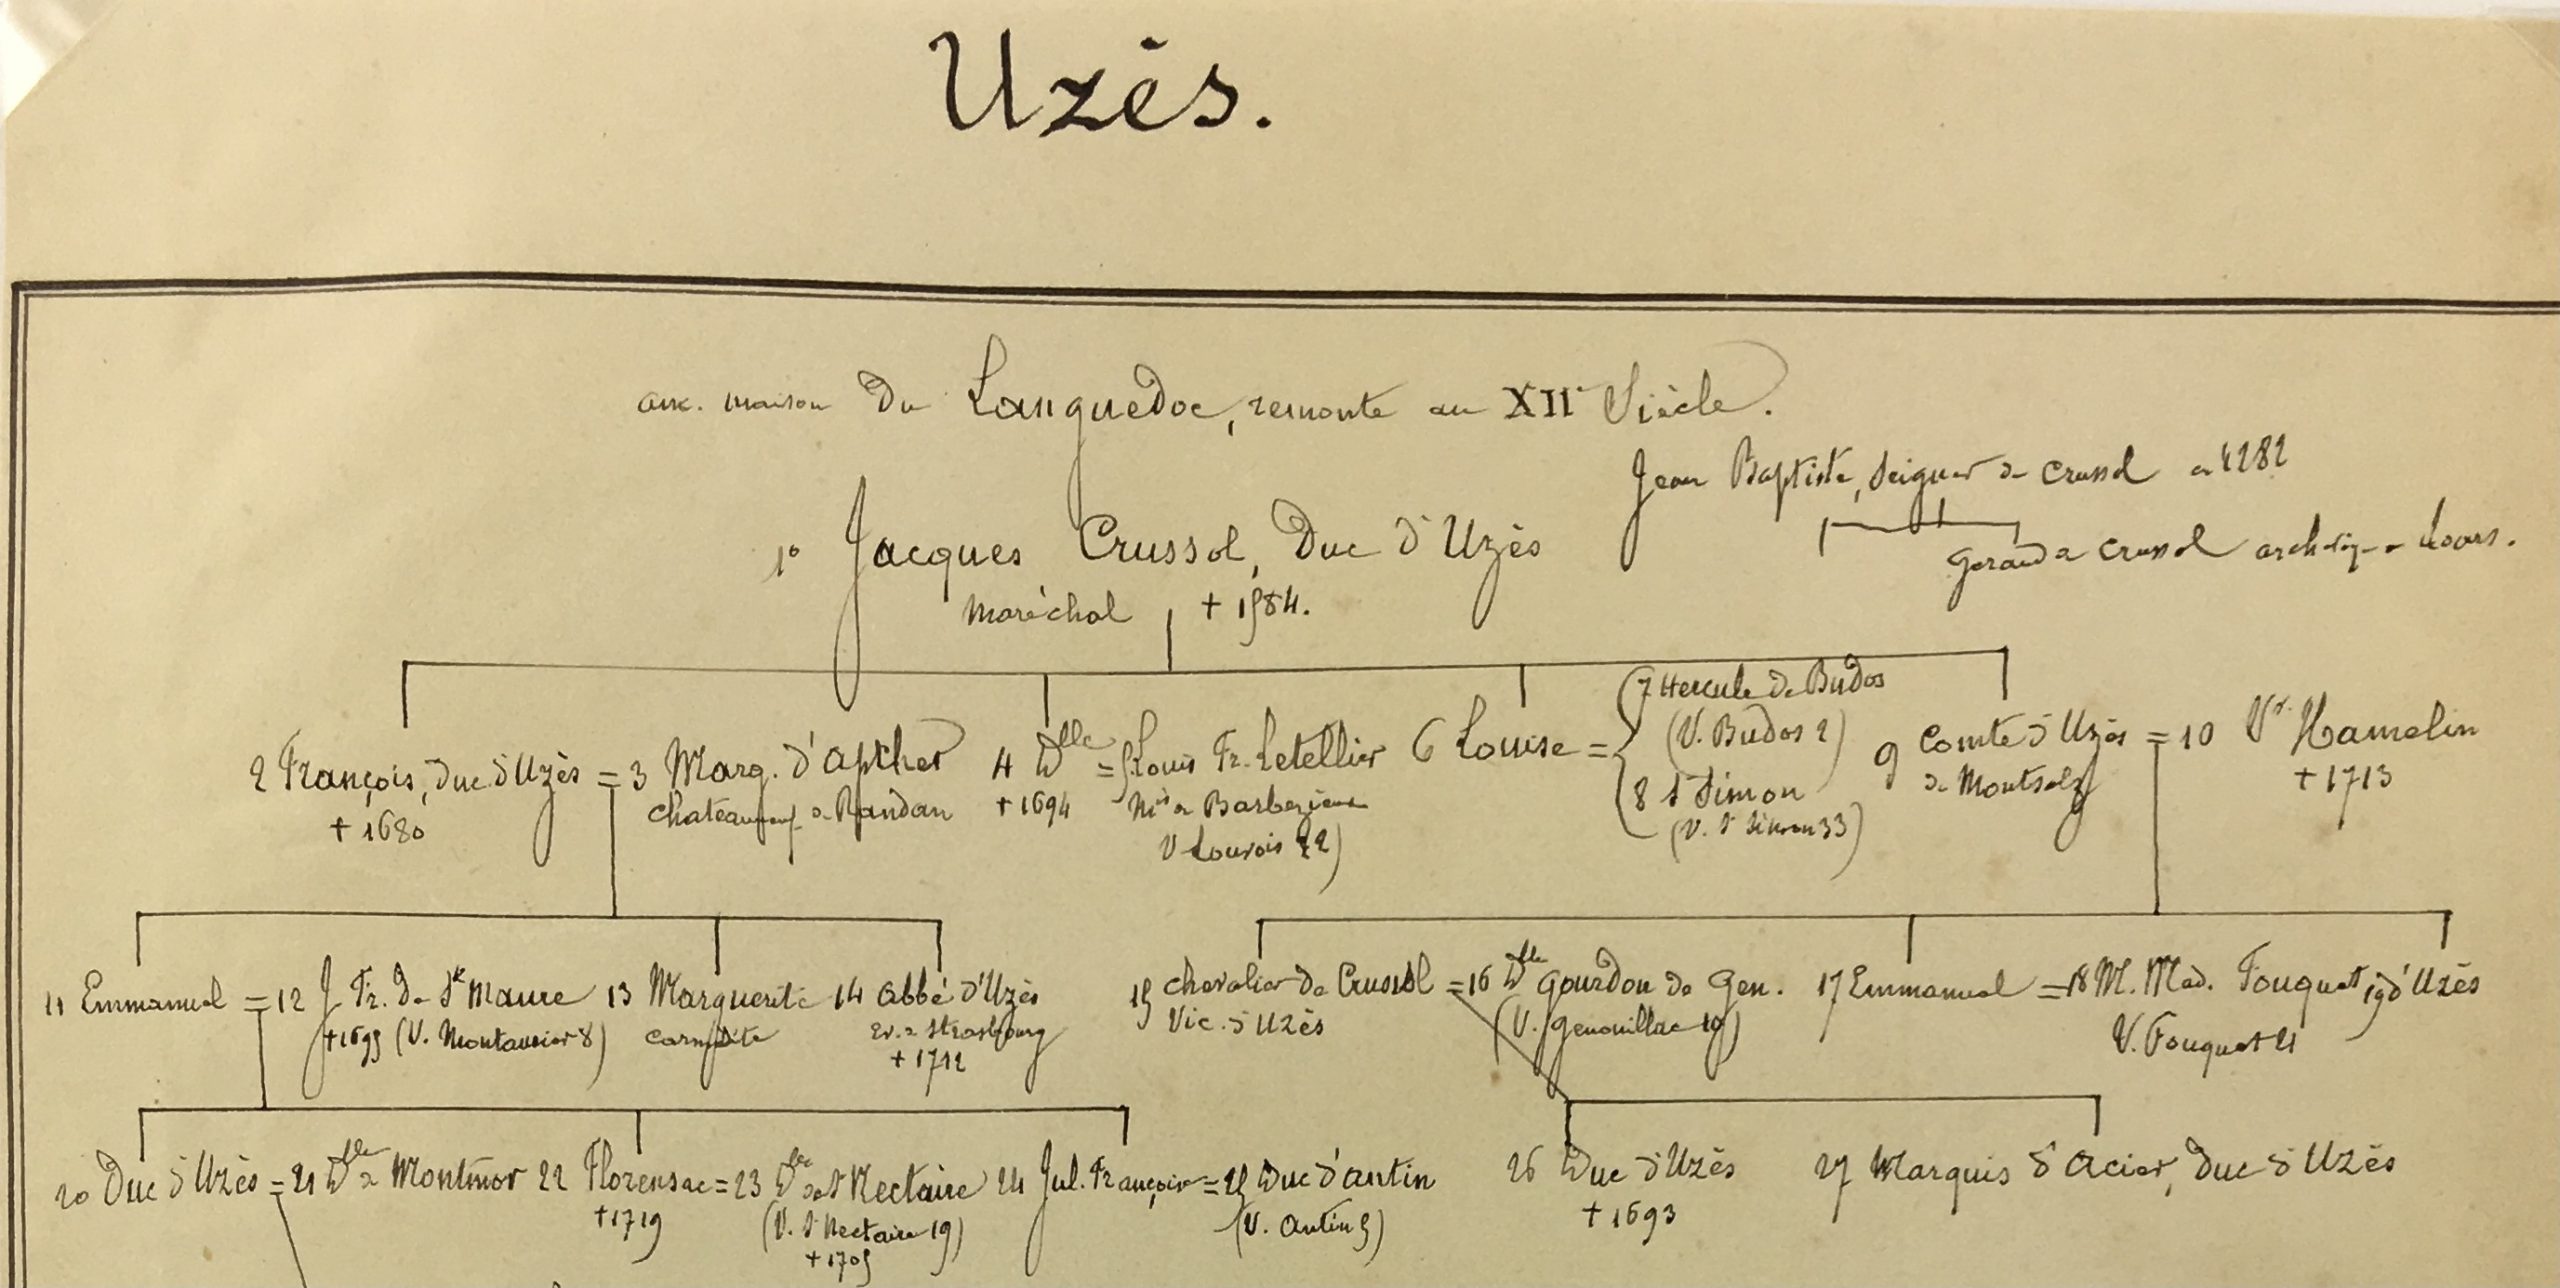 Uzès.
anc. maison du Languedoc, remonte au XIIe Siècle.
Jean Baptiste, Seigneur de Crussol en 1282
1° Jacques Crussol, Duc d'Uzès
Gerand de Crussol archevêque de Tours.
Maréchal + 1584.
2 François, duc d'Uzès = 3 Marg. d'Apcher 4 Dlle = 5 Louis Fr. Letellier 6 Louise = 7 Hercule de Budos
(V. Budos 2)
9 Comte d'Uzès = 10 Vr. Hamelin
+ 1680 Chateauneuf de Randan + 1694 Mis de Barbezieux 8 St Simon de Montsalz + 1713
V Louvois 22) (V. St Simon 33)
11 Emmanuel = 12 J Fr. de Ste Maure 13 Marguerite 14 Abbé d'Uzès 15 Chevalier de Crussol = 16 Dlle Gourdon de Gen. 17 Emmanuel = 18 M. Mad. Fouquet, 19 d'Uzès
+ 1695 (V. Montausier 8) carmélite Ev. de Strasbourg Vic. d'Uzès (V. Genouillac 10) V. Fouquet 21
+ 1712
20 Duc d'Uzès = 21 Dlle de Montmor 22 Florensac = 23 Dlle de St Nectaire 24 Jul. Françoise = 25 Duc d'antin 26 Duc d'Uzès 27 Marquis d'Acier, Duc d'Uzès
+ 1719 (V. St Nectaire 19) (V. Antin 5) + 1693
+ 1705